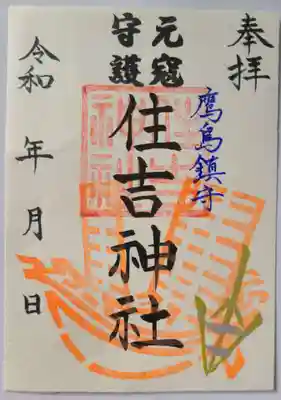 奉拝
鷹島鎮守
元寇
守護
住吉神社
令和 年 月 日